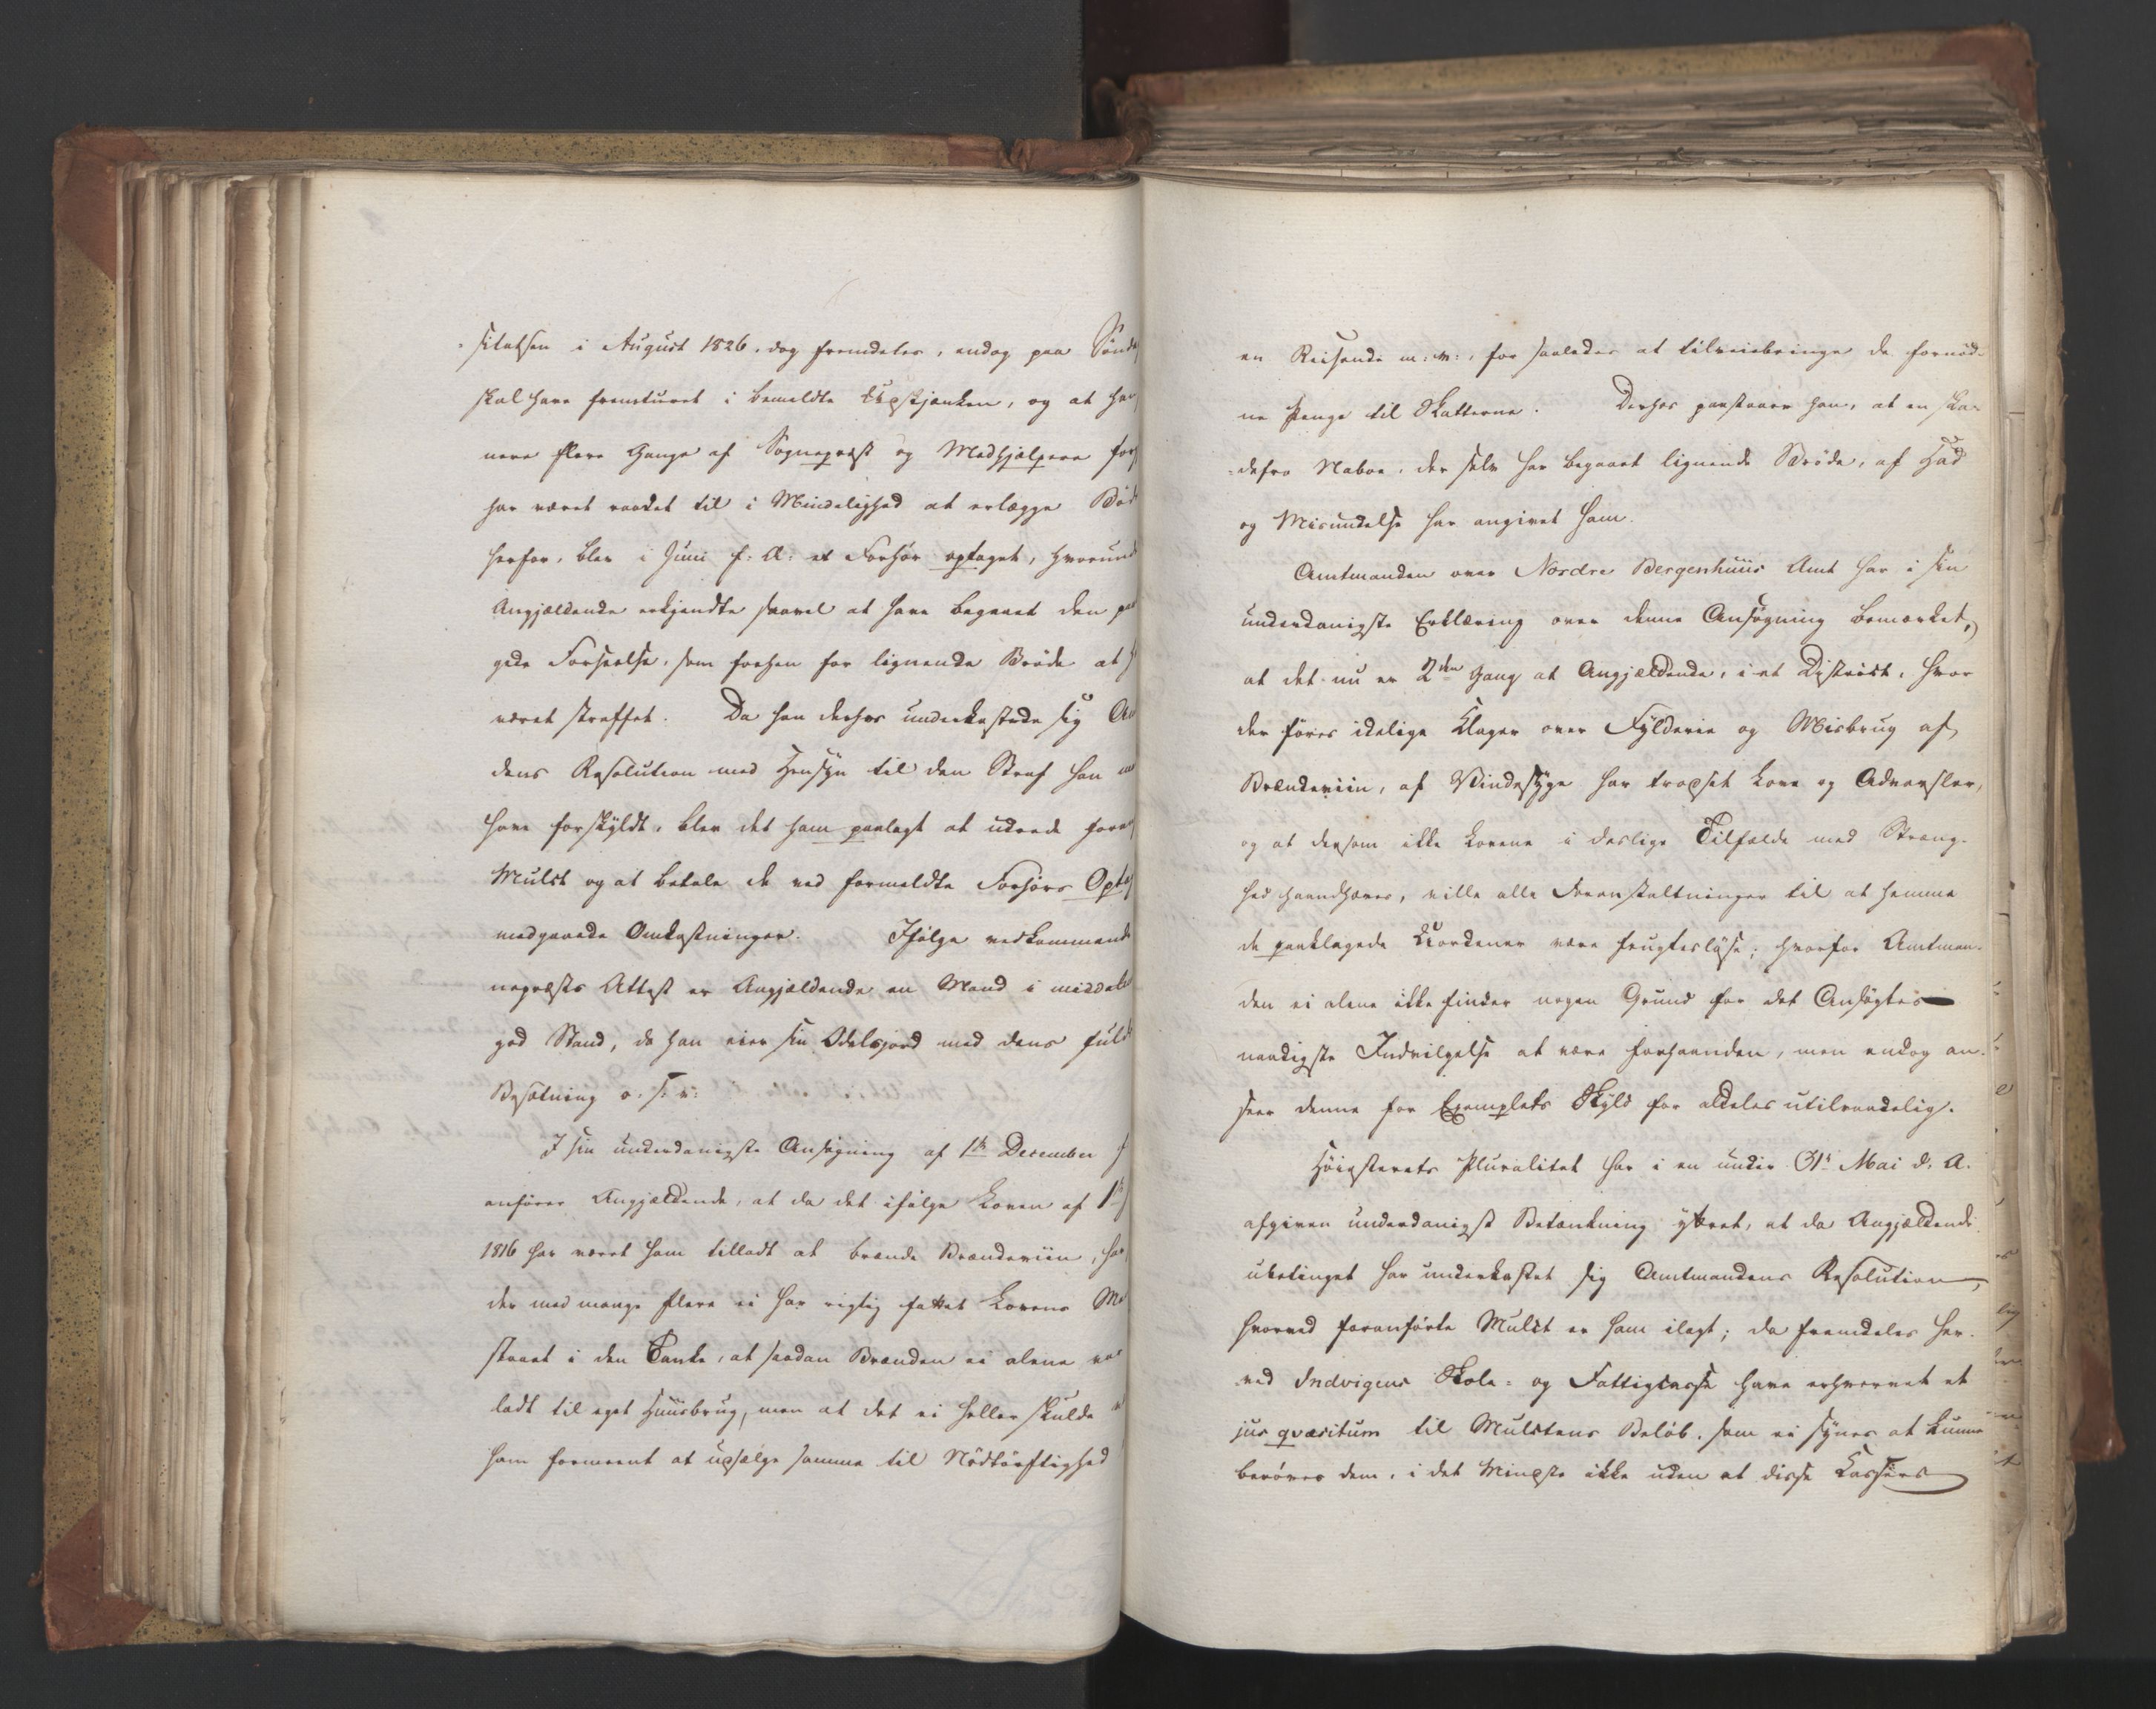 sitatsen i August 1826, dog fremdeles, endog paa Sönda
skal have fremturet i bemeldte Udskjænken, og at han
nere flere Gange af Sognepræst og Medhjælpere for
har været raadet til i Mindelighed at erlægge Böd
herfor, blev i Juni f: A: et Forhör optaget, hvorund
Angjældende erkjendte saavel at have begaaet den paa
gede Forseelse, som forhen for lignende Bröde at h
været straffet. Da han derhos underkastede sig Am
dens Resolution med Hensyn til den Straf han
have forskyldt, blev det ham paalagt at udrede foran
Mulct og at betale de ved formeldte Forhörs Optag
medgaaede Omkostninger. Ifölge vedkommende
nepræsts Attest er Angjældende en Mand i middel
god Stand, da han eier sin Odelsjord med dens fulde
Besætning o. s: v:
I sin underdanigste Ansögning af 1ste December f
anförer Angjældende, at da det ifölge Loven af 1ste
1816 har været ham tilladt at brænde Brændeviin, har
der med mange flere ei har rigtig fattet Lovens Me
staaet i den Tanke, at saadan Brænden ei alene var
ladt til eget Huusbrug, men at det ei heller skulde
ham formeent at udsælge samme til Nödtörftighed
en Reisende m: v:, for saaledes at tilveiebringe de fornöd-
ne Penge til Skatterne. Derhos paastaaer han, at en ska-
defro Naboe, der selv har begaaet lignende Bröde, af Had
og Misundelse har angivet ham.
Amtmanden over Nordre Bergenhuus Amt har i sin
underdanigste Erklæring over denne Ansögning bemærket,
at det nu er 2den Gang at Angjældende, i et District, hvor
der föres idelige Klager over Fylderie og Misbrug af
Brændeviin, af Vindesyge har trodset Love og Advarsler,
og at dersom ikke Lovene i deslige Tilfælde med Stræng-
hed haandhæves, ville alle Foranstaltninger til at hemme
de paaklagede Uordener være frugteslöse; hvorfor Amtman-
den ei alene ikke finder nogen Grund for det Ansögtes
naadigste Indvilgelse at være forhaanden, men endog an-
seer denne for Exemplets Skyld for aldeles utilraadelig.
Höiesterets Pluralitet har i en under 31te Mai d. A.
afgiven underdanigst Betænkning yttret, at da Angjældende
ubetinget har underkastet sig Amtmandens Resolution,
hvorved foranförte Mulct er ham ilagt; da fremdeles her-
ved Indvigens Skole- og Fattigcasse have erhvervet et
jus qvæsitum til Mulctens Belöb, som ei synes at kunne
beröves dem, i det Mindste ikke uden at disse Cassers